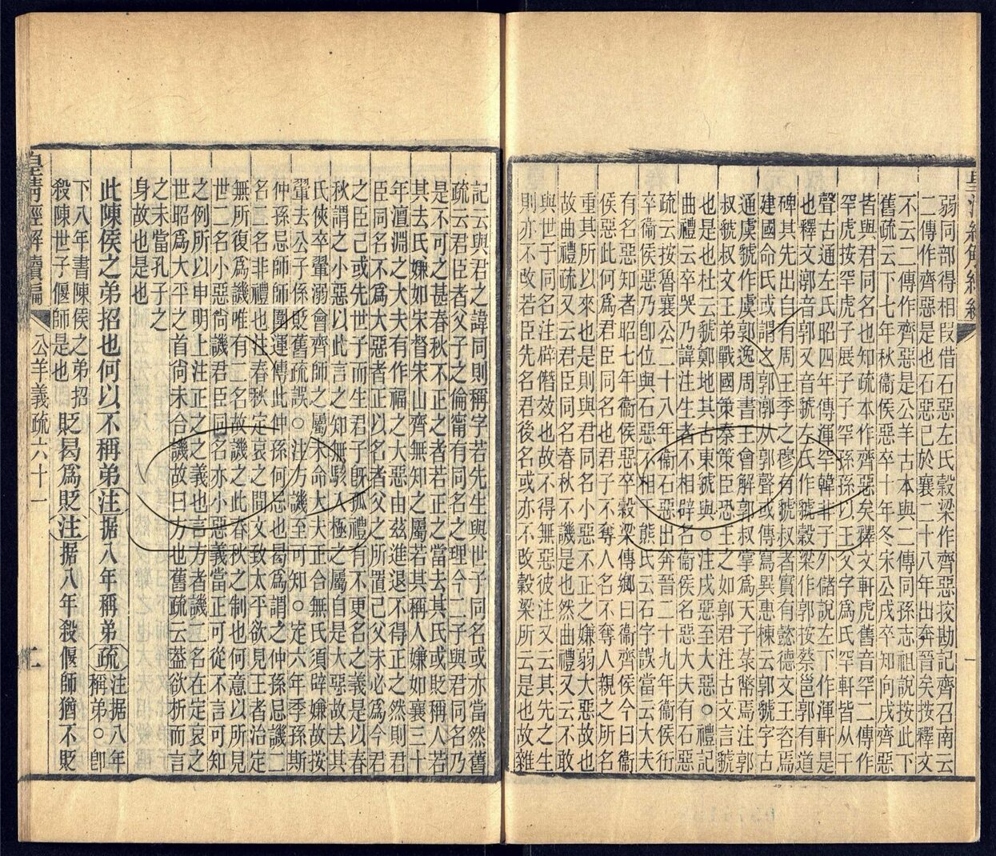 弱同部得相叚借石惡左氏穀梁作齊惡按勘記齊召南云
二傳作齊惡是也石惡已於襄二十八年出奔晉矣按釋文
不云二傳作齊惡是公羊古本與二傳同孫志祖說按此下
舊疏云下七年秋衞侯惡卒十年冬宋公戌卒知向戌齊惡
皆與君同名也知疏本作齊惡矣釋文軒虎舊音罕二傳作
罕虎按罕虎子展子子罕孫孫以王文字爲氏罕軒皆从干
聲古通左氏昭四年傳渾罕韓非子外儲說左下作渾軒是
也釋文郭音郭又音虢左氏作虢穀梁作郭按蔡邕郭有道
碑其先出自有周王季之穆有虢叔者實有懿德文王咨焉
建國命氏或謂之郭郭从
通虞虢作虞郭逸周書王會解郭叔掌爲天子菉幣焉注郭
叔虢叔文王弟戰國策秦策臣恐王之如郭君注古文言虢
也是也杜云虢鄭地其古東虢與○注戌惡至大惡○禮記
曲禮云卒哭乃諱注生者不相辟名衞侯名惡大夫有石惡
卒衞侯惡乃卽位與石惡不相
疏云按魯襄公二十八年衞石惡出奔晉二十九年衞侯衎
有名惡知者昭七年衞侯惡卒穀梁傳鄉曰衞齊惡今曰衞
侯惡此何爲君臣同名也君子不奪人名不奪人親之所名
重其所以來也是則與君同名小惡不正之嫌弱大惡故也
故曲禮疏又云君臣同名春秋不譏是也然曲禮又云不敢
與世子同名注辟僭效也故不得無惡彼注又云其先之生
則亦不改若臣先名君後名或亦不改穀梁所
記云與君之諱同則稱字若先生與世子同名或亦當然舊
疏云君臣者父子之倫甯有同名之理今二子與君同名乃
是不可之甚春秋不正之者若正之當去其氏或貶稱人若
其去氏嫌如宋督宋山齊無知之屬若其稱人嫌如襄三十
年澶淵之大夫有作福之大惡由茲進退不得正之然則君
臣同名不爲大惡者正以名者父之所置己父未必爲今君
之臣己或先世子而生君子
秋謂之小惡以此言之知無駭入極之屬自是大惡故去其
氏俠卒翬溺會齊師之屬未命大夫正合無氏須辟嫌故按
翬去公子係貶舊疏誤○注方譏至可知○定六年季孫斯
仲孫忌帥師圍運傳此仲孫何忌也曷爲謂之仲孫忌譏二
名二名非禮也注春秋定哀之間文致太平欲見王者治定
無所復爲譏唯有二名故譏之此春秋之制也何意以所見
世二名小惡尙譏君臣同名亦小惡義當可從不言可知
之例所以申明上注正之之義也言方者譏二名在定哀之
世昭爲大平之首尙未合譏故曰方也舊疏云蓋欲析而言
之未當孔子之
身故也是也
此陳侯之弟招也何以不稱弟注据八年稱弟疏注据八年稱弟○卽
下八年書陳侯之弟招
殺陳世子偃師是也 貶曷爲貶注据八年殺偃師猶不貶
皇清經解續編
公羊義疏六十一